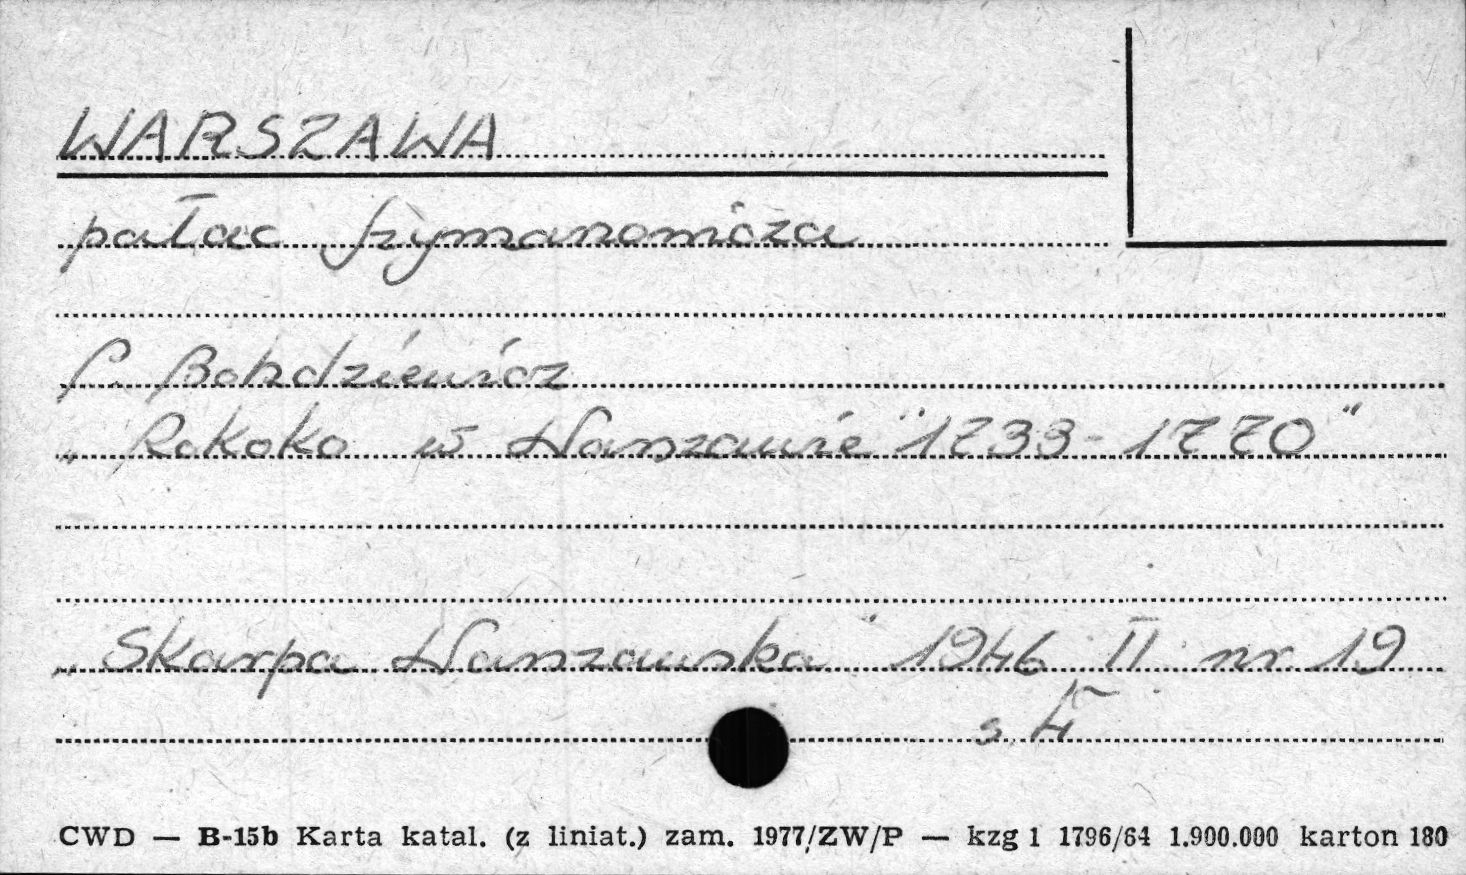 WARSZAWA
pałac Szymanowicza
P. Bohdziewicz
„Rokoko w Warszawie" 1733-1770"
„Skarpa Warszawska" 1946 II nr 19
s. 4
CWD — B-15b Karta katal. (z liniat.) zam. 1977/ZW/P — kzg 1 1796/64 1.900.000 karton 180